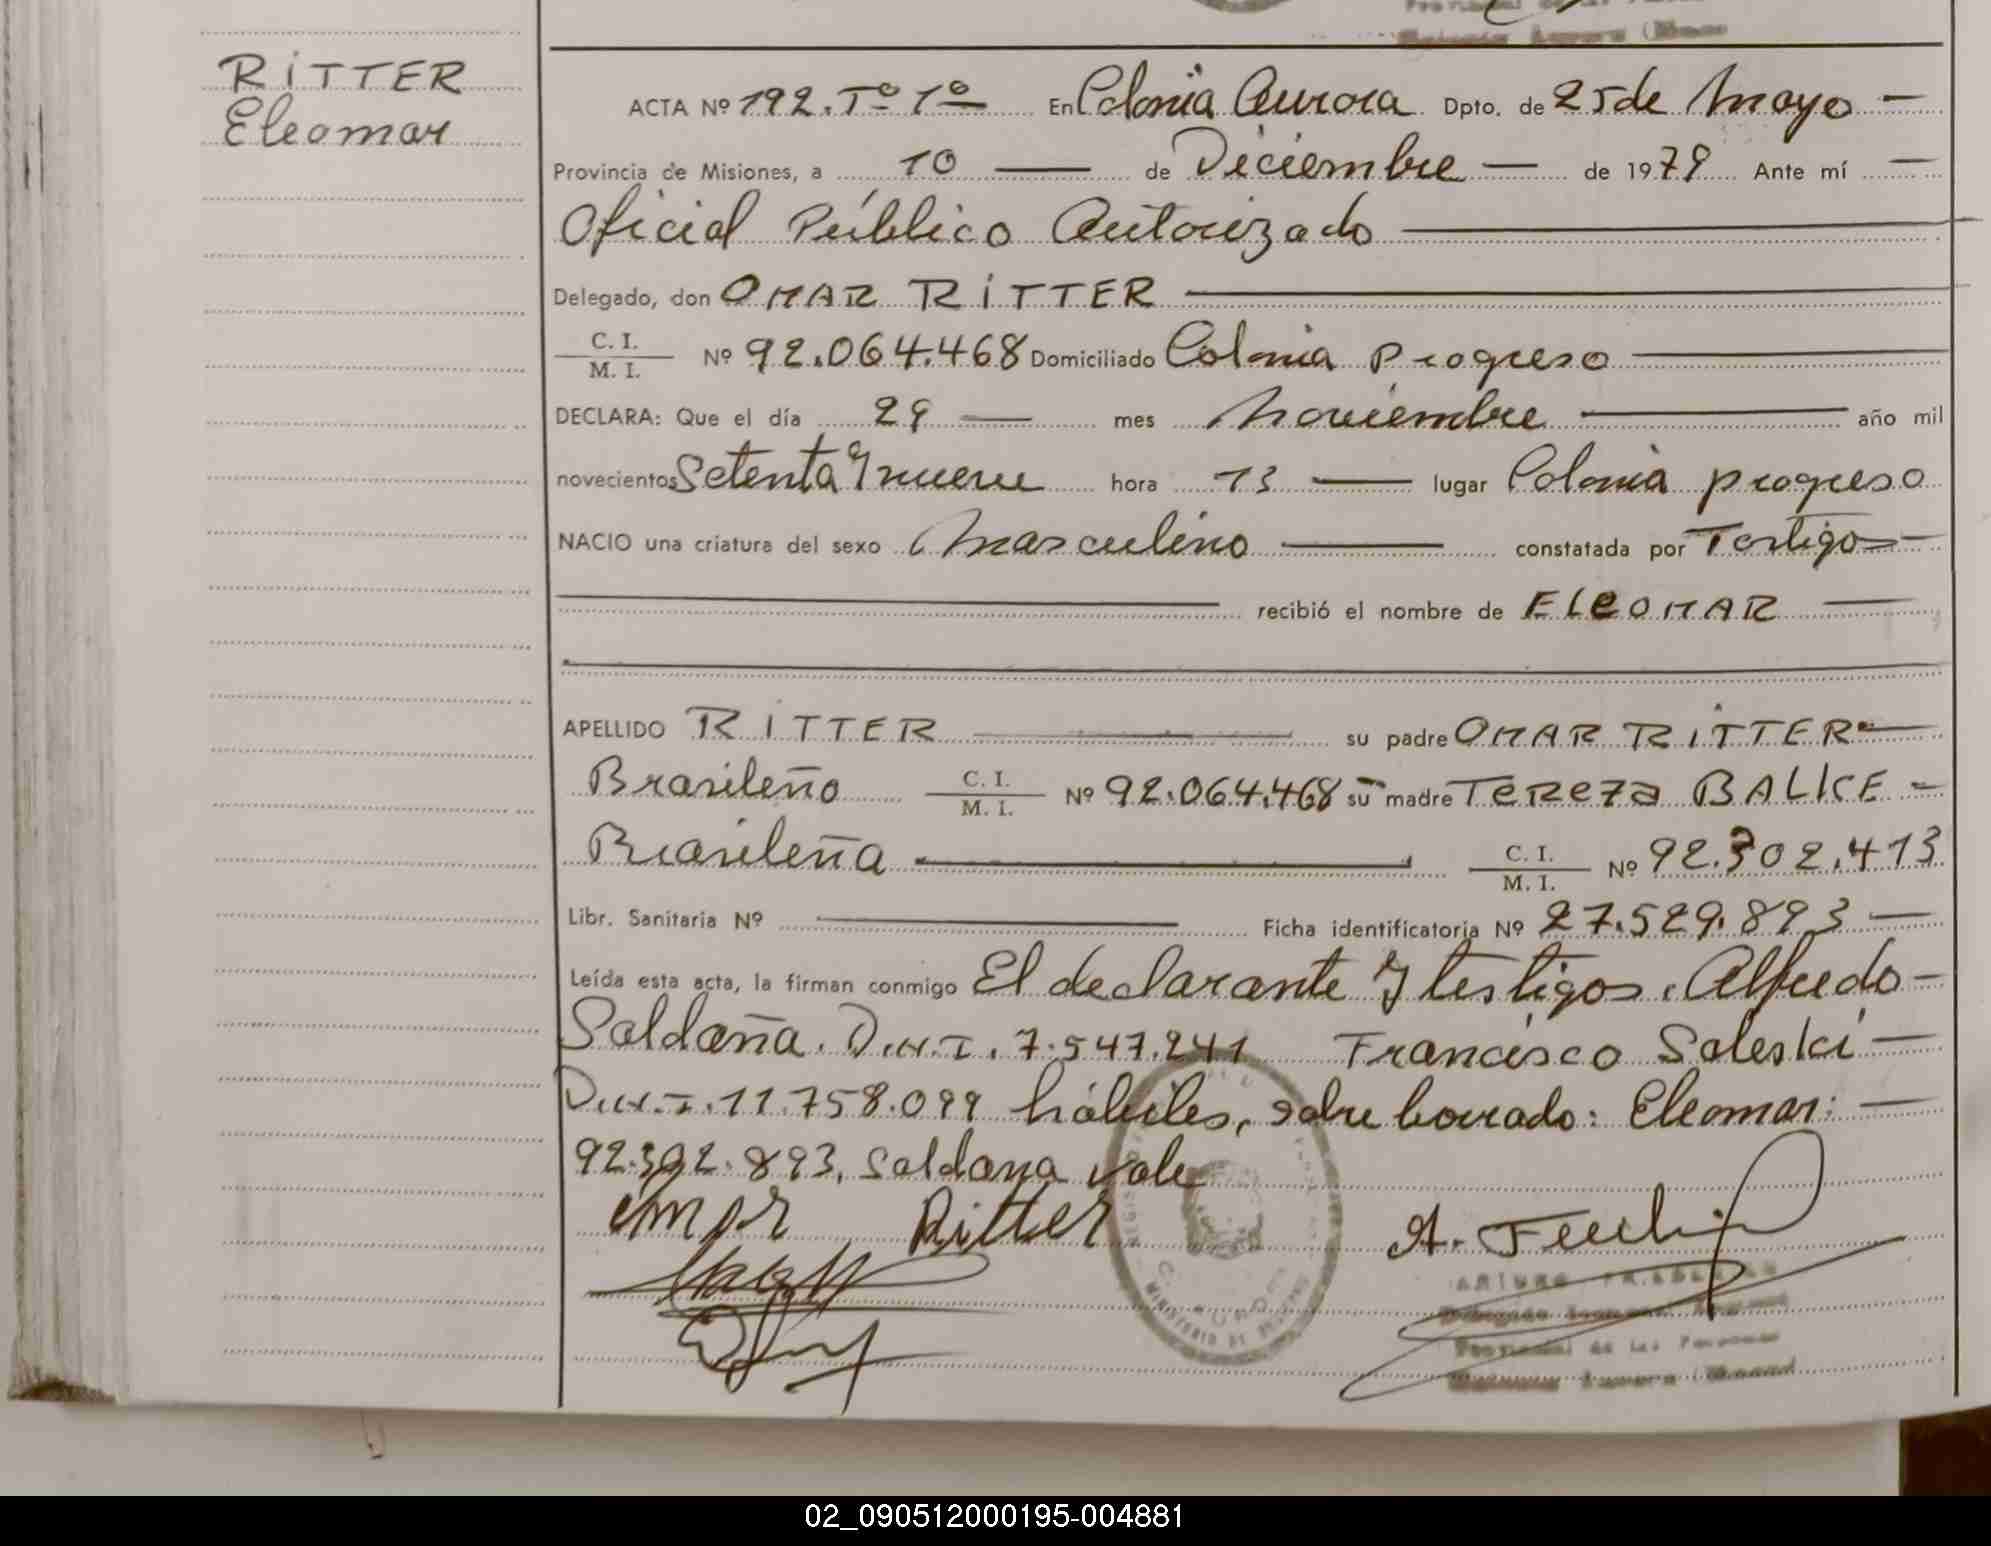 RITTER
Eleomar
ACTA Nº 192. Tº 1º En Colonia Aurora Dpto. de 25 de Mayo —
Provincia de Misiones, a 10 — de Diciembre — de 1979 Ante mí —
Oficial Público Autorizado —
Delegado, don OMAR RITTER —
C. I.
M. I. Nº 92.064.468 Domiciliado Colonia Progreso —
DECLARA: Que el día 29 — mes Noviembre — año mil
novecientos Setenta y nueve hora 13 — lugar Colonia progreso
NACIO una criatura del sexo Masculino — constatada por Testigos —
— recibió el nombre de ELEOMAR —
APELLIDO RITTER — su padre OMAR RITTER —
Brasileño C. I.
M. I. Nº 92.064.468 su madre TEREZA BALKE —
Brasileña — C. I.
M. I. Nº 92.302.413
Libr. Sanitaria Nº — Ficha identificatoria Nº 27.529.893 —
Leída esta acta, la firman conmigo El declarante y testigos. Alfredo —
Saldaña. D.N.I. 7.547.241 Francisco Saleski —
D.N.I. 11.758.099 hábiles, sobre borrado: Eleomar: —
92.392.893, Saldana vale
Omar Ritter
REGIS
MINISTERIO DE
de las Personas
02_090512000195-004881